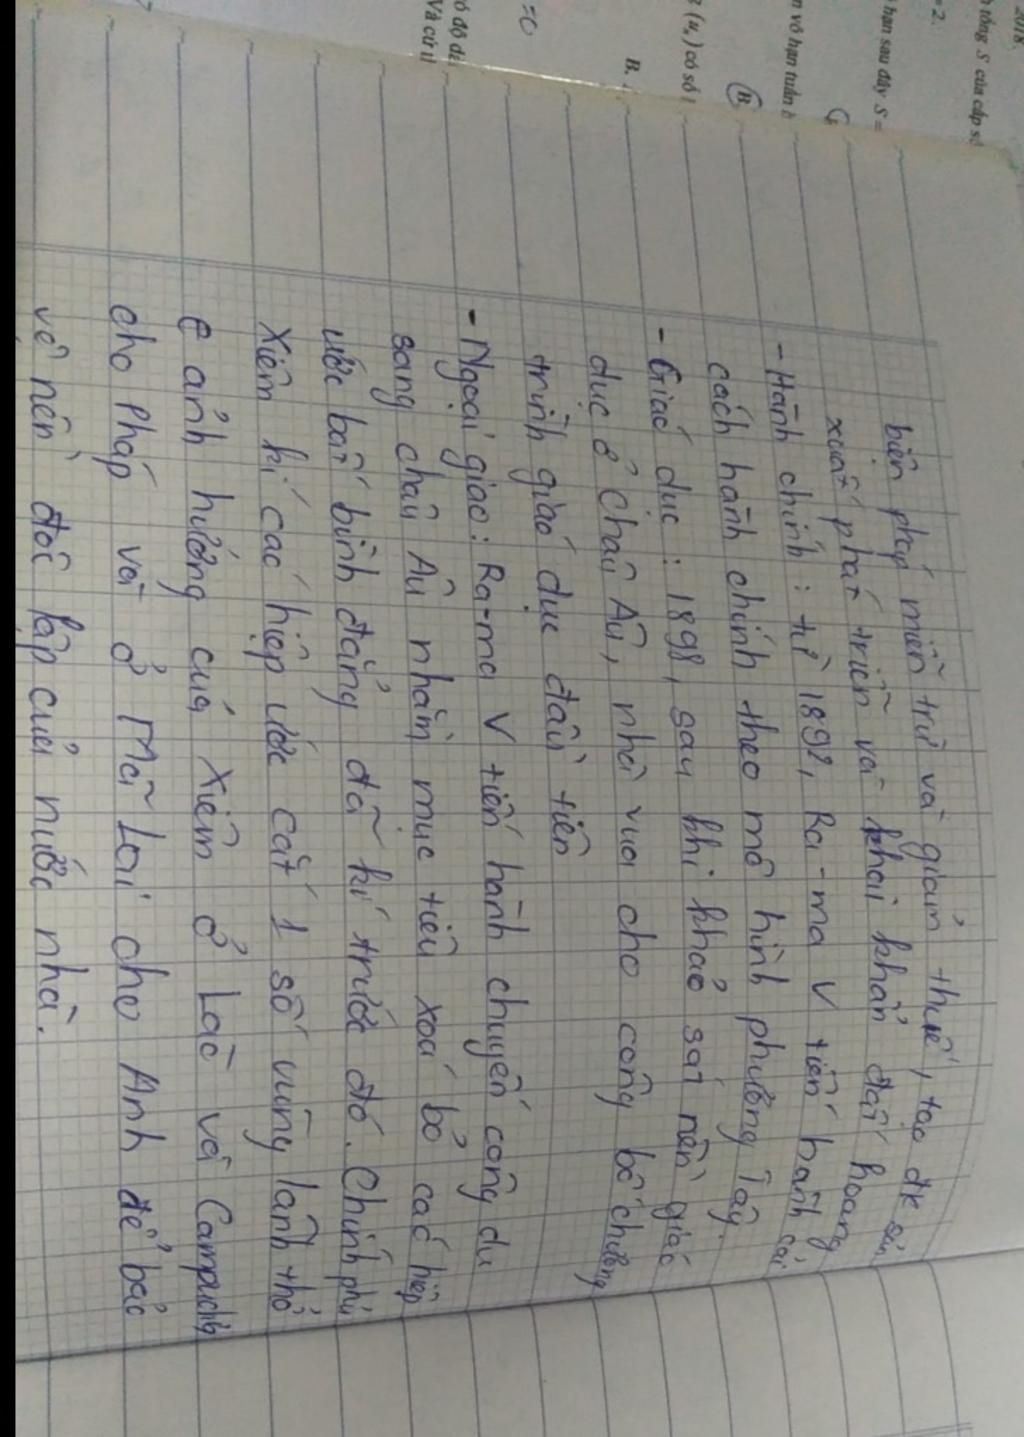 2018.
tổng S của cấp số
=2.
hạn sau đây S =
n vô hạn tuần h
B
(uₙ) có số
B.
=0
ó độ dà
Và cứ ti
biện pháp miễn trừ và giảm thuế, tạo đk sản
xuất phát triển và khai khẩn đất hoang
- Hành chính: từ 1892, Ra-ma V tiến hành cải
cách hành chính theo mô hình phương Tây.
- Giáo dục: 1898, sau khi khảo sát nền giáo
dục ở Châu Âu, nhà vua cho công bố chương
trình giáo dục đầu tiên
- Ngoại giao: Ra-ma V tiến hành chuyến công du
sang châu Âu nhằm mục tiêu xoá bỏ các hiệp
ước bất bình đẳng đã kí trước đó. Chính phủ
Xiêm kí các hiệp ước cắt 1 số vùng lãnh thổ
ảnh hưởng của Xiêm ở Lào và Campuchia
cho Pháp và ở Mã Lai cho Anh để bảo
vệ nền độc lập của nước nhà.